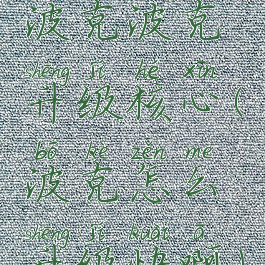 波克波克
shēng jí hé xīn
升级核心(
bō kè zěn me
波克怎么
shēng jí kuài a
升级快啊)